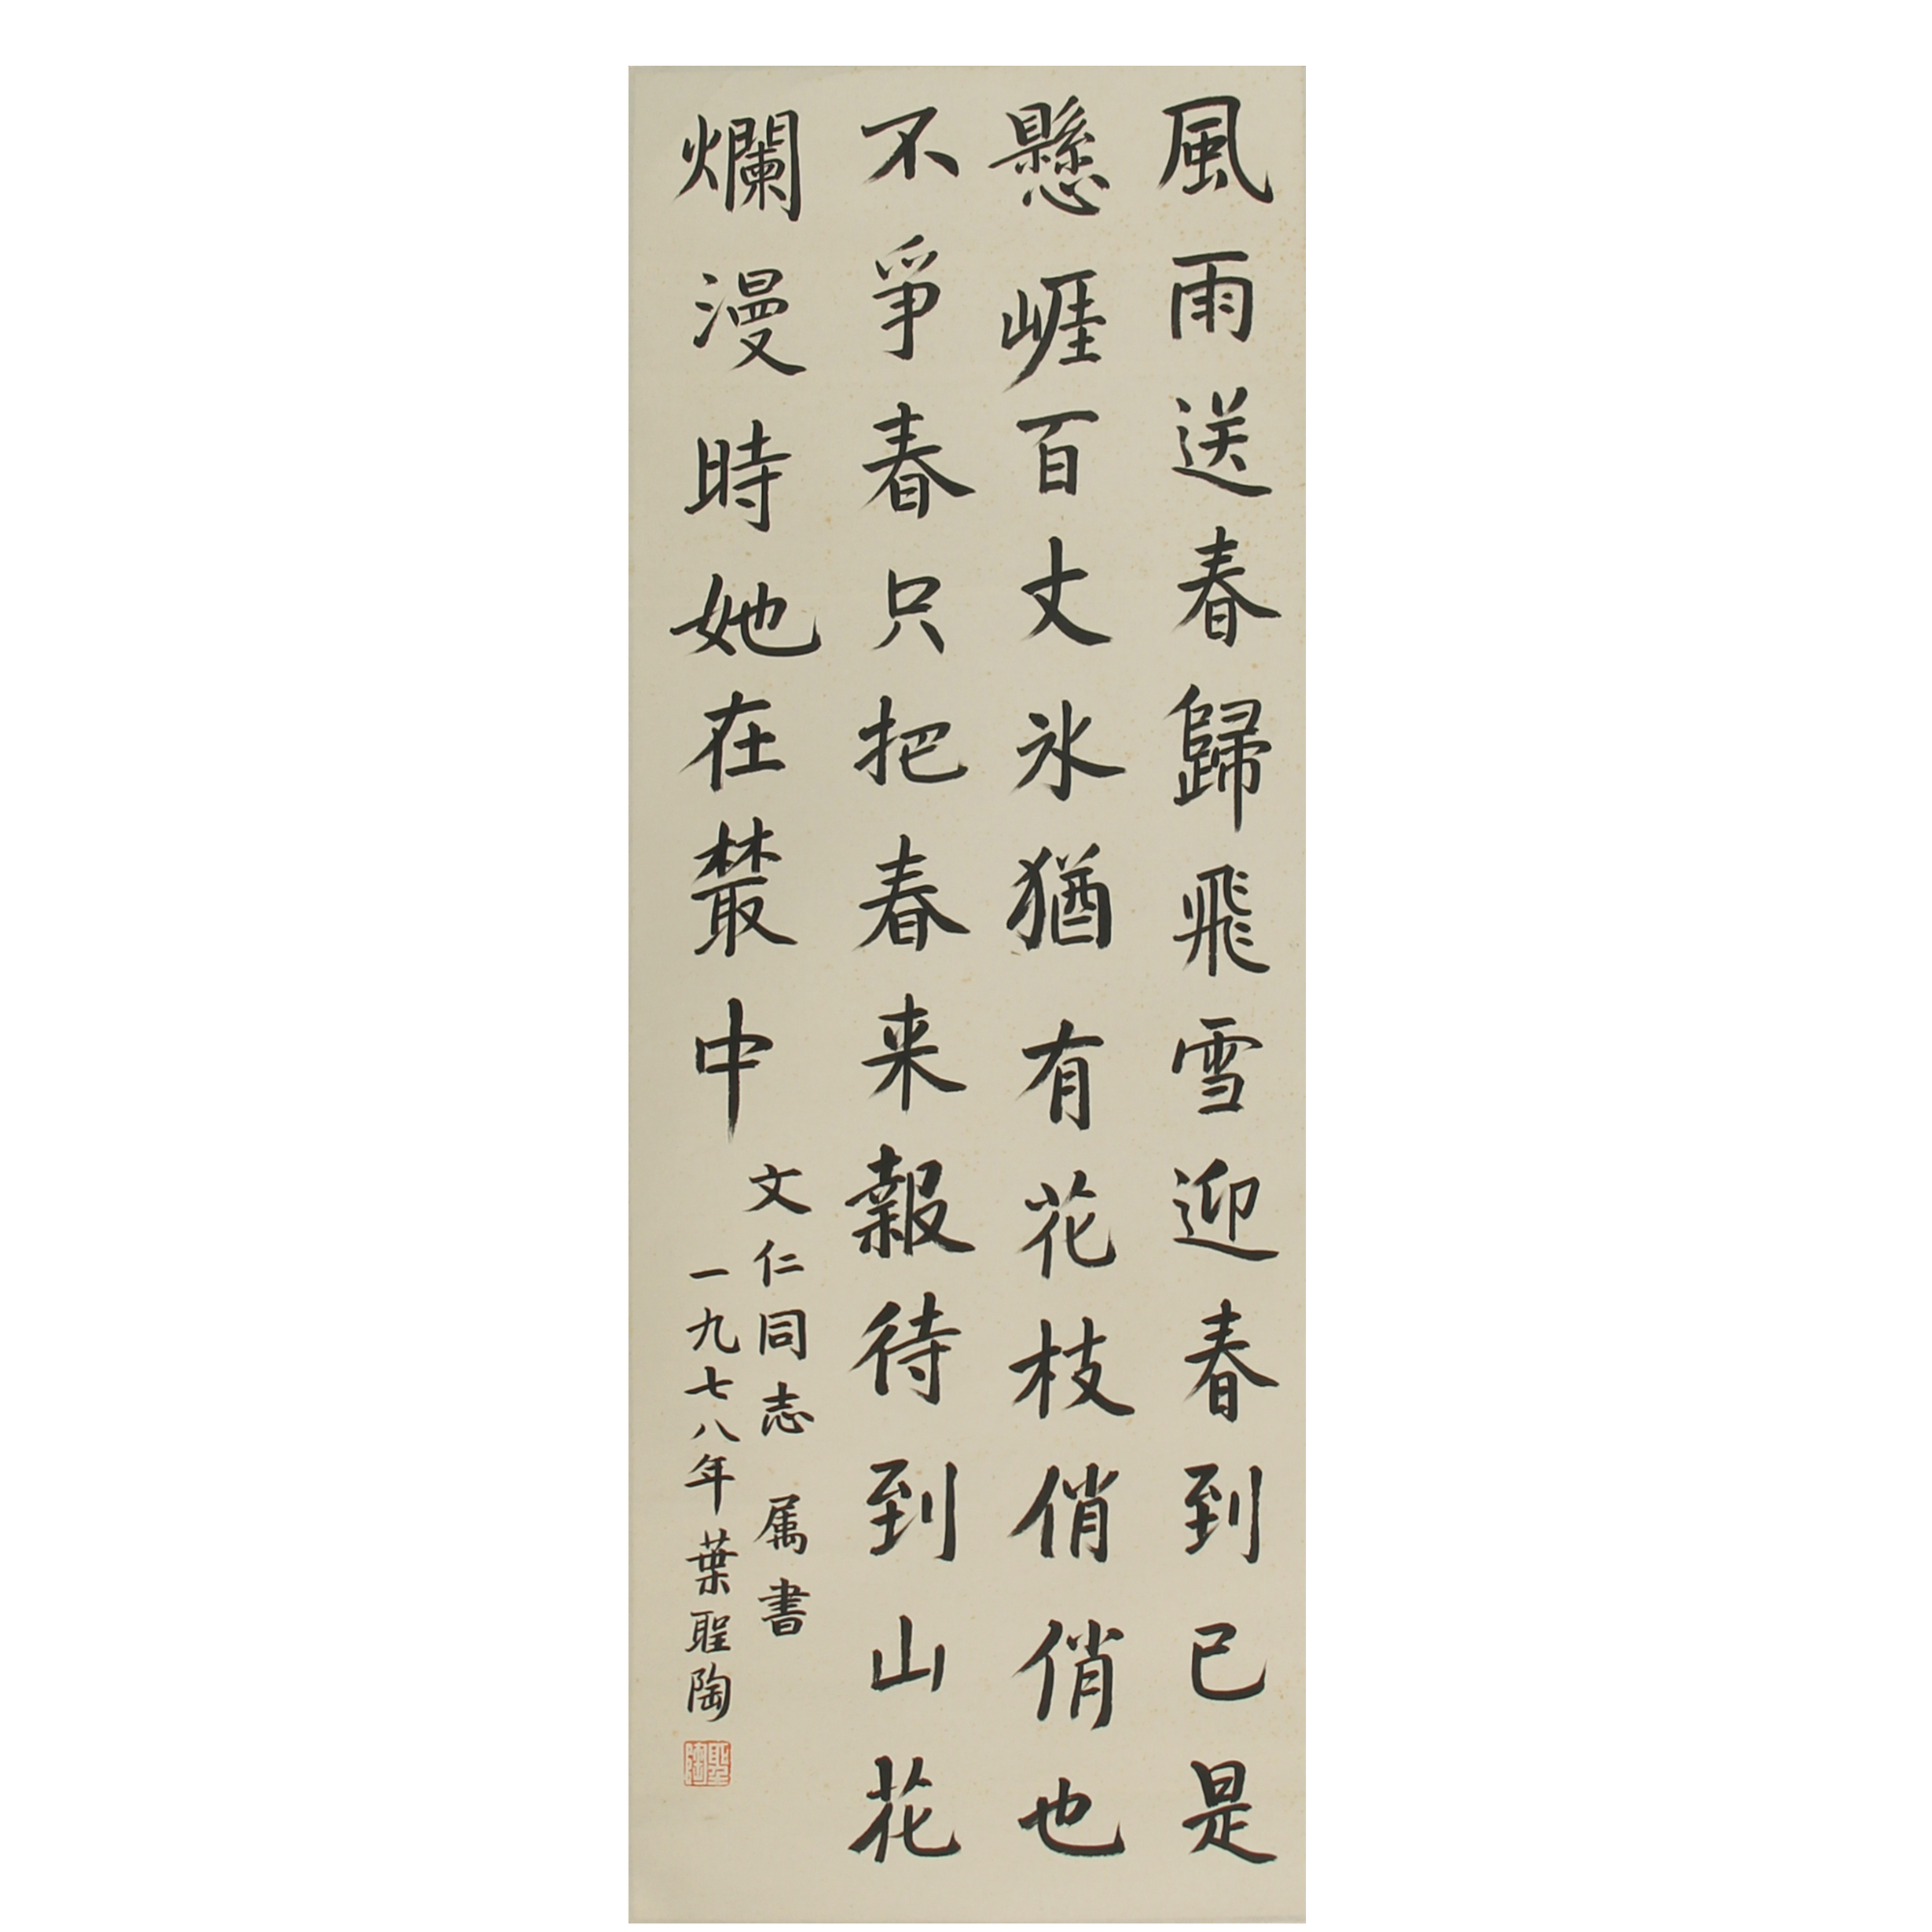 風雨送春歸飛雪迎春到已是
懸崕百丈氷猶有花枝俏俏也
不爭春只把春来報待到山花
爛漫時她在叢中
文仁同志 属書
一九七八年葉聖陶
聖陶